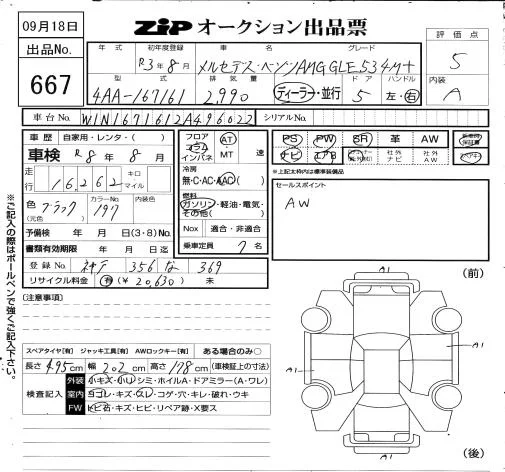 09月18日
ZIP オークション出品票
評価点
出品No.
667
年式 初年度登録 車名 グレード
R3年8月 メルセデス・ベンツAMG GLE534M+
S
型式 排気量 ドア ハンドル
4AA-167161 2,990 ディーラー・並行 5 左・右
内装
A
車台No. W1N1671612A496022 シリアルNo.
車歴 自家用・レンタ・( )
車検 R8年8月
走行 16,262 キロ マイル
色 ブラック (元色) カラーNo. 197 内装色
予備検 年 月 日(3・8)No.
書類有効期限 年 月 日迄
登録No. 神戸 356 な 369
リサイクル料金 有(¥20,630) 未
フロア コラム インパネ AT MT 速
冷房
無・C・AC・AAC( )
燃料
ガソリン・軽油・電気・その他( )
Nox 適合・非適合
乗車定員 7名
PS PW SR 革 AW 新車時保証書
ナビ エアB 社外ナビ 社外AW 記録簿
※上記太枠内は標準装備品
セールスポイント
AW
(注意事項)
スペアタイヤ[有] ジャッキ工具[有] AWロックキー[有] ある場合のみ○
長さ495cm 幅202cm 高さ178cm (車検証上の寸法)
検査記入
外装 小キズ・小凹・シミ・ホイルA・ドアミラー(A・ワレ)
室内 ヨゴレ・キズ・スレ・コゲ・穴・キレ・破れ・ウキ
FW トビ石・キズ・ヒビ・リペア跡・X要ス
※ご記入の際はボールペンで強くご記入下さい。
A1
(前)
A1
A1
A1
(後)